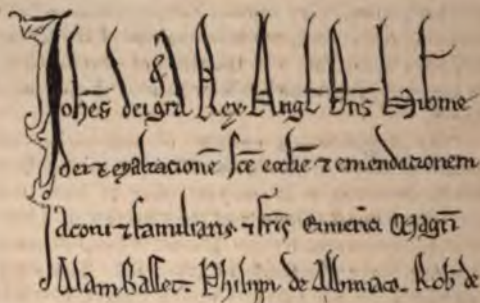 Johes dei gra Rex Angl Dns Hibnie
dei & exaltacione sce ecclie & emendacionem
dconi & familiaris & fris Emerici Magri
Alam Basset. Philippi de Albiniaco. Rob de